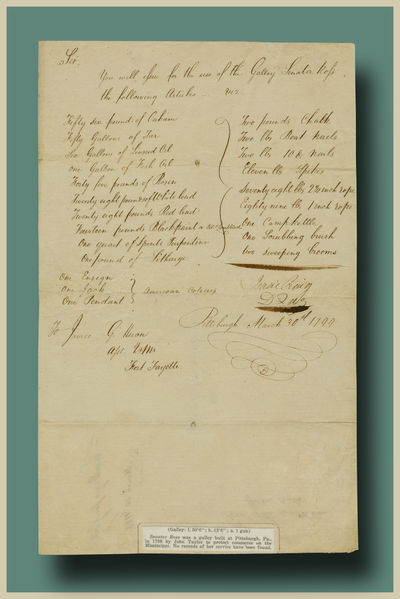 Sir,
You will issue for the use of the Galley Senator Ross
the following Articles — viz
Fifty six pounds of Oakum
Fifty Gallons of Tar
Six Gallons of Linseed Oil
One Gallon of Fish Oil
Forty five pounds of Rosin
Twenty eight pounds of White lead
Twenty eight pounds Red lead
Fourteen pounds Black paint in
One quart of Spirits Turpentine
One pound of Litharge
Two pounds Chalk
Two lbs Boat nails
Two lbs 10 d nails
Eleven lbs Spikes
Seventy eight lbs 2 1/2 inch rope
Eighty nine lbs 1 inch rope
One Camp kettle
One Scrubbing brush
two sweeping brooms
One Ensign
One Jack
One Pendant
American Colours
Isaac Craig
D Q M G
Pittsburgh March 30th 1799
To James G Heron
Fort Fayette
(Galley: l. 50'6"; b. 13'6"; a. 1 gun)
Senator Ross was a galley built at Pittsburgh, Pa.,
in 1798 by John Taylor to protect commerce on the
Mississippi. No records of her service have been found.